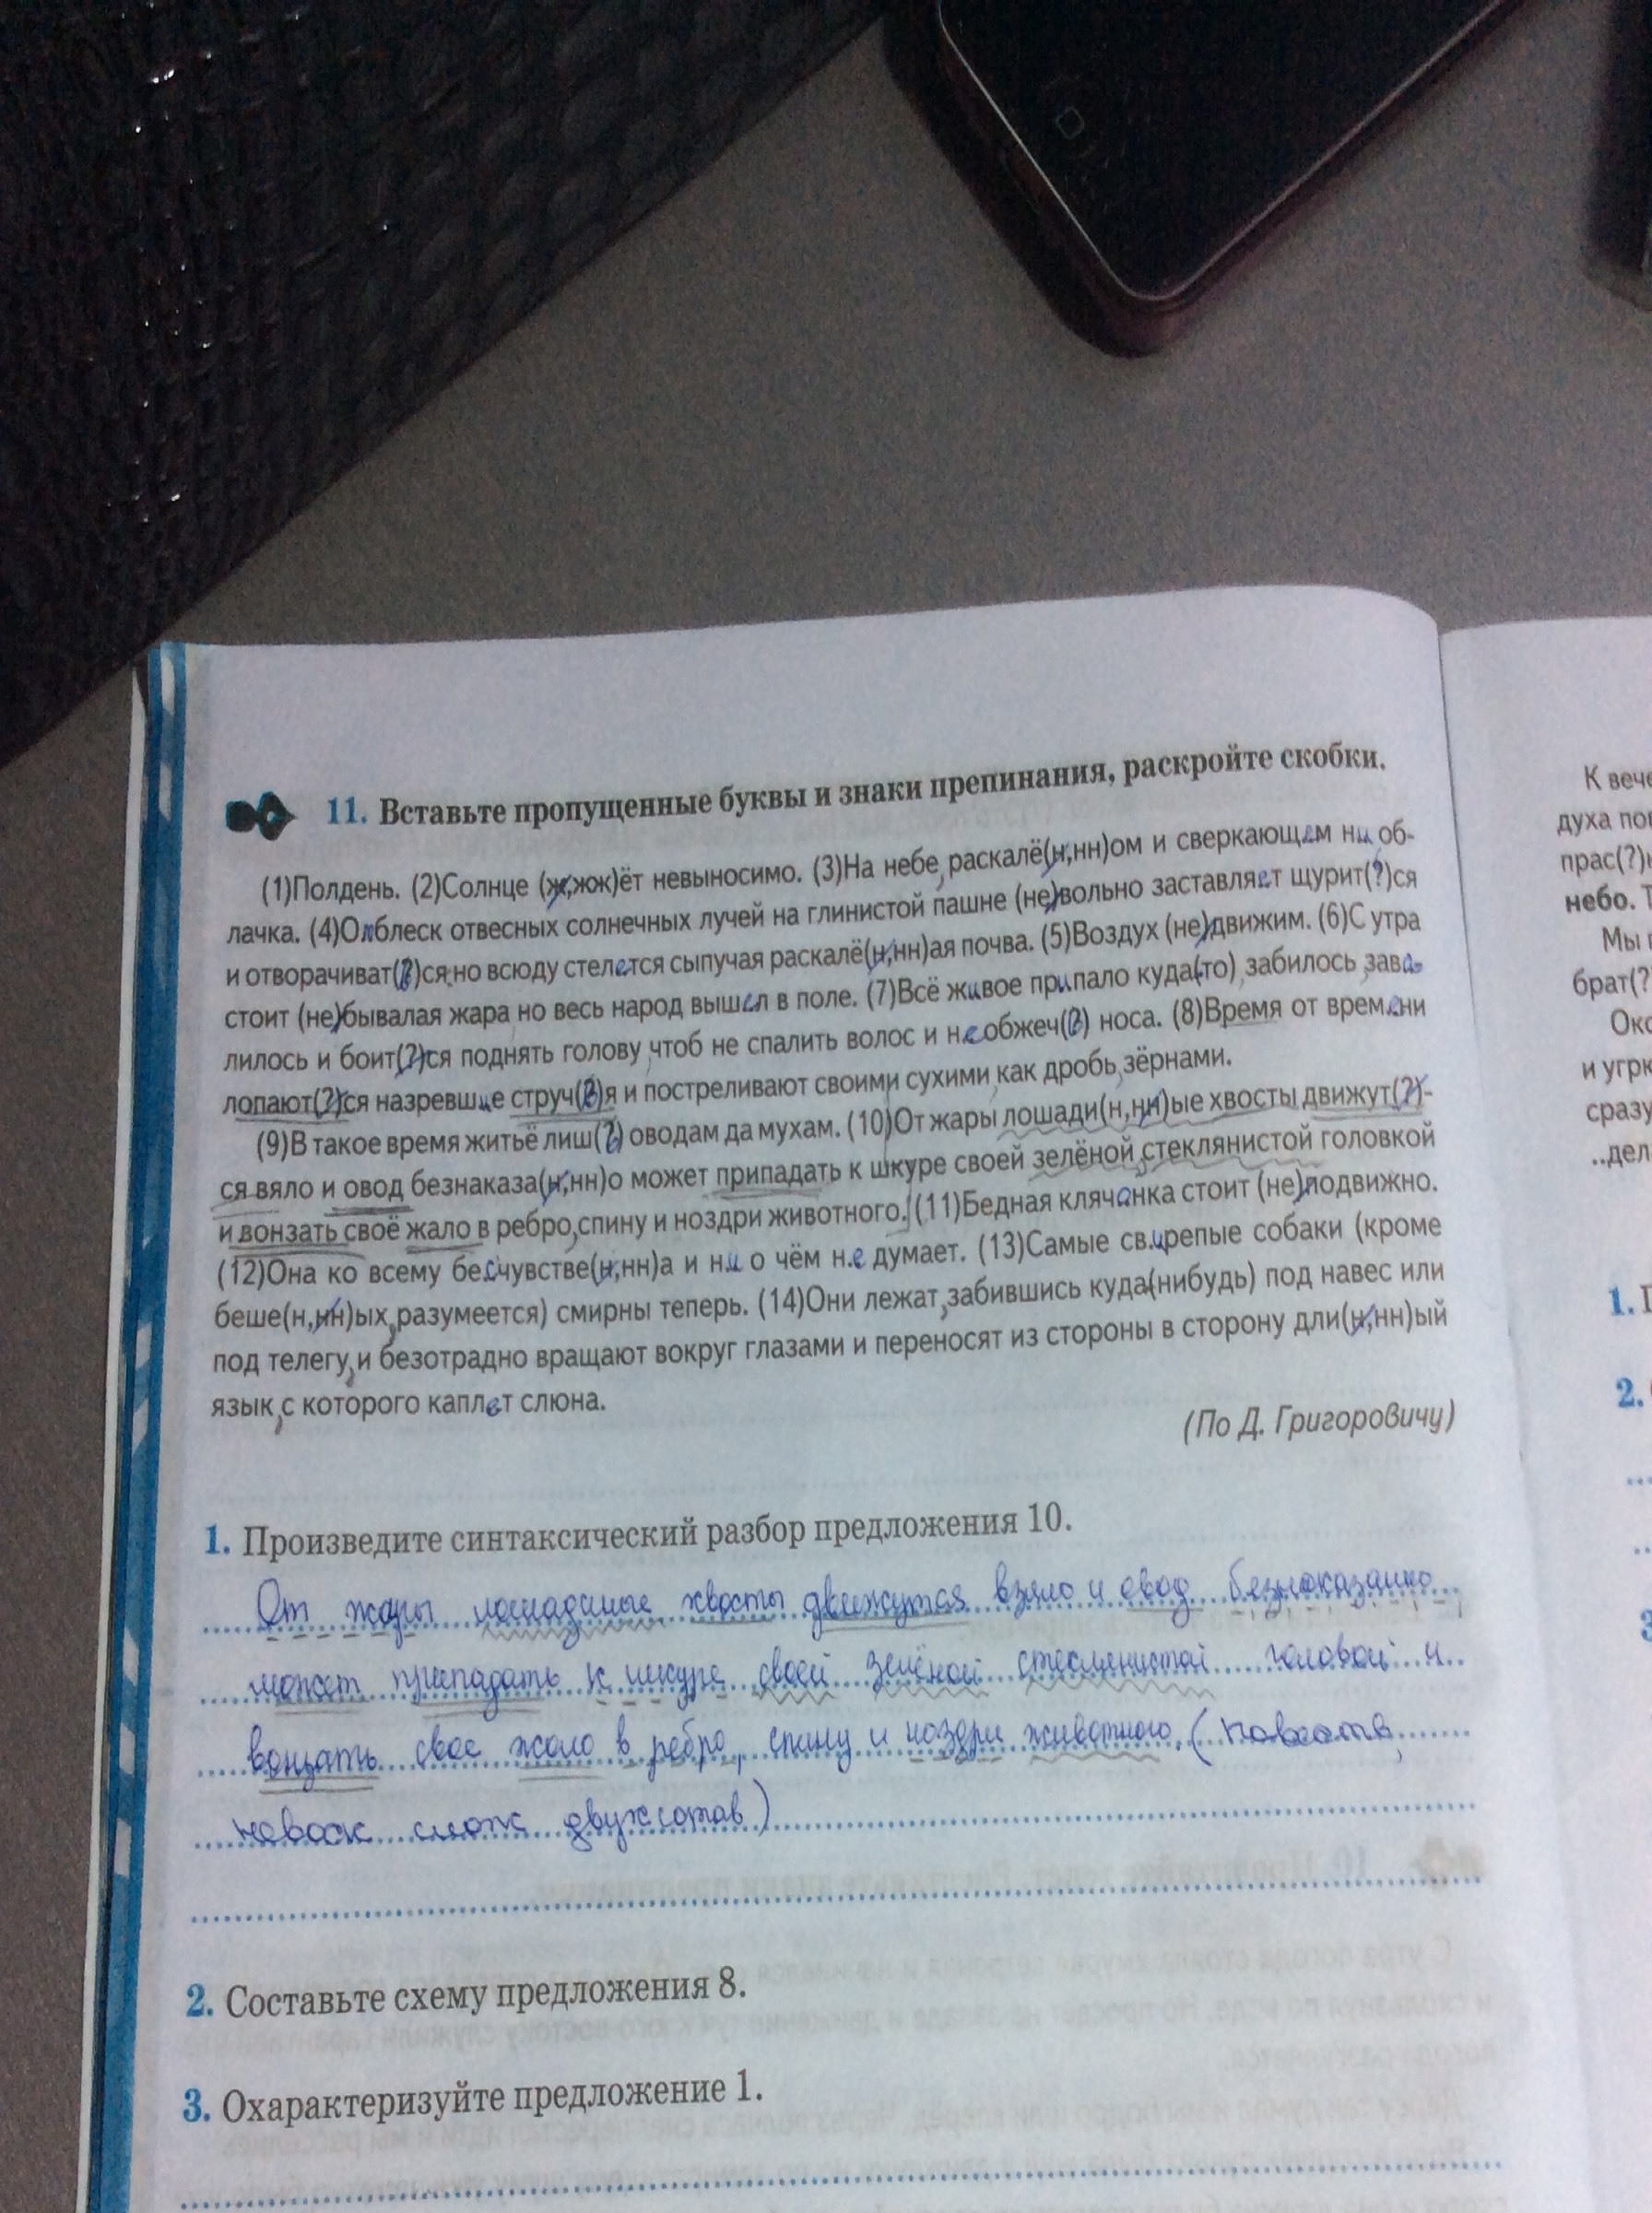 11. Вставьте пропущенные буквы и знаки препинания, раскройте скобки.
(1)Полдень. (2)Солнце (ж,жж)ёт невыносимо. (3)На небе, раскалё(н,нн)ом и сверкающем ни об-
лачка. (4)Отблеск отвесных солнечных лучей на глинистой пашне (не)вольно заставляет щурит(?)ся
и отворачиват(?)ся, но всюду стелется сыпучая раскалё(н,нн)ая почва. (5)Воздух (не)движим. (6)С утра
стоит (не)бывалая жара но весь народ вышел в поле. (7)Всё живое припало куда(то), забилось, зава-
лилось и боит(?)ся поднять голову, чтоб не спалить волос и не обжеч(?) носа. (8)Время от времени
лопают(?)ся назревшие струч(?)я и постреливают своими сухими, как дробь, зёрнами.
(9)В такое время житьё лиш(?) оводам да мухам. (10)От жары лошади(н,нн)ые хвосты движут(?)-
ся вяло и овод безнаказа(н,нн)о может припадать к шкуре своей зелёной, стеклянистой головкой
и вонзать своё жало в ребро, спину и ноздри животного. (11)Бедная клячонка стоит (не)подвижно.
(12)Она ко всему бесчувстве(н,нн)а и ни о чём н.е думает. (13)Самые св.ирепые собаки (кроме
беше(н,нн)ых, разумеется) смирны теперь. (14)Они лежат, забившись куда(нибудь) под навес или
под телегу, и безотрадно вращают вокруг глазами и переносят из стороны в сторону дли(н,нн)ый
язык, с которого каплет слюна.
(По Д. Григоровичу)
1. Произведите синтаксический разбор предложения 10.
От жары лошадиные хвосты движутся вяло и овод безнаказанно
может припадать к шкуре своей зелёной стеклянистой головой и
вонзать свое жало в ребро, спину и ноздри животного. (повеств,
невоск слож двухсотав)
2. Составьте схему предложения 8.
3. Охарактеризуйте предложение 1.
К вече
духа по
прас(?)
небо.
Мы
брат(?
Око
и угрю
сразу
..дел
1.
2.
3